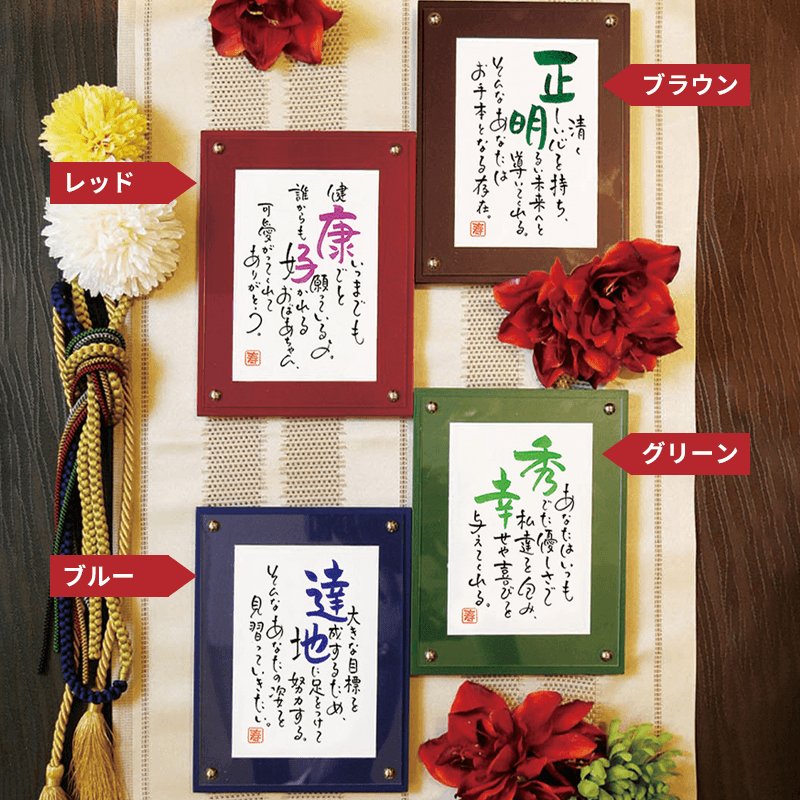 ブラウン
清く
正しい心を持ち、
明るい未来へと
導いてくれる。
そんなあなたは
お手本となる存在。
寿
レッド
健
康でと
いつまでも
願っているよ。
好かれる
誰からも
おばあちゃん、
可愛がってくれて
ありがとう。
寿
グリーン
あなたはいつも
秀でた優しさで
私達を包み、
幸せや喜びを
与えてくれる。
寿
ブルー
大きな目標を
達成するため、
地に足をつけて
努力する。
そんなあなたの姿を
見習っていきたい。
寿